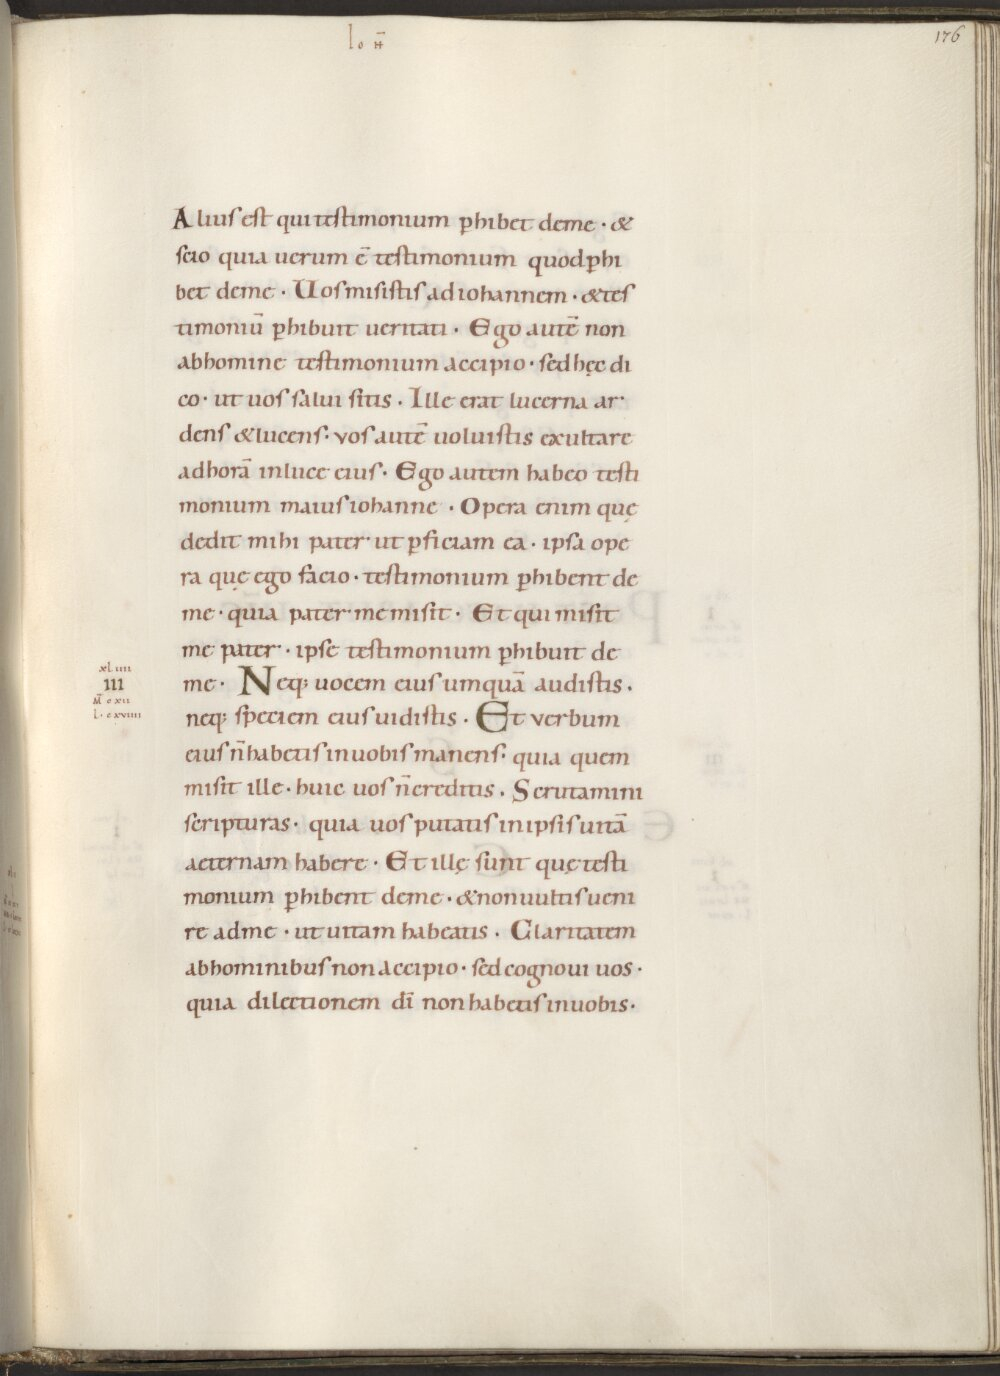 Io H̄
176
Alius est qui testimonium p̄hibet deme · &
scio quia uerum ē testimonium quod p̄hi
bet deme · Uos misistis ad iohannem · & tes
timoniū p̄hibuit ueritati · Ego autē non
ab homine testimonium accipio · sed hęc di
co · ut uos salui sitis · Ille erat lucerna ar
dens & lucens · vos autē uoluistis exultare
ad horā in luce eius · Ego autem habeo testi
monium maius iohanne · Opera enim quę
dedit mihi pater · ut p̄ficiam ea · ipsa ope
ra quę ego facio · testimonium p̄hibent de
me · quia pater me misit · Et qui misit
me pater · ipse testimonium p̄hibuit de
me · Neq; uocem eius umquā audistis ·
neq; speciem eius uidistis · Et verbum
eius n̄ habetis in uobis manens · quia quem
misit ille · huic uos n̄ creditis · Scrutamini
scripturas · quia uos putatis in ipsis uitā
aeternam habere · Et illę sunt quę testi
monium p̄hibent deme · & non uultis ueni
re ad me · ut uitam habeatis · Claritatem
ab hominibus non accipio · sed cognoui uos ·
quia dilectionem dī non habetis in uobis ·
xLiiii
III
M̄ cxii
L · cxviiii